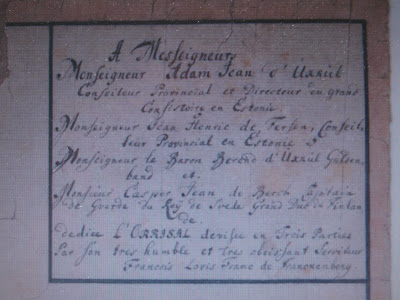 A Messeigneurs
Monseigneur Adam Jean d'Üxküll
Conseileur Provincial et Directeur du grand
Consistoire en Estonie
Monseigneur Jean Henric de Fersen, Conseil-
leur Provincial en Estonie
Monseigneur le Baron Berend d'Üxküll Güldenbend
et.
Monsieur Casper Jean de Berch Capitain
de Gvarde du Roy de Svede Grand Duc du Finlan
de
dedice L'ORRISAL devisee en Trois Parties
Par son tres humble et tres obeissant Serviteur
Francois Loris Franc de Franckenberg.